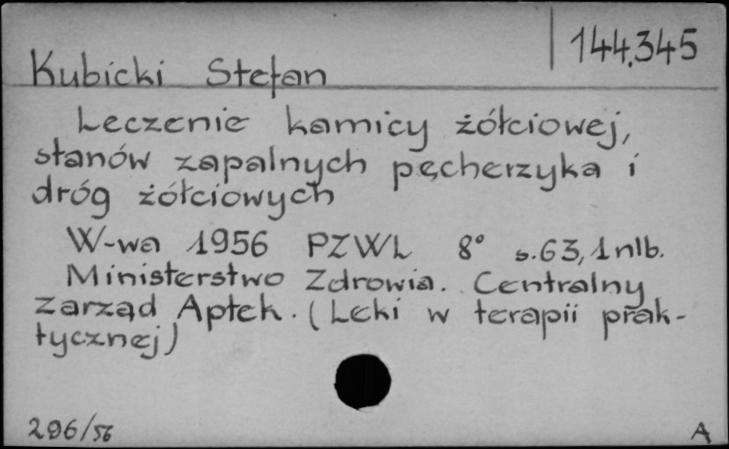 144.345
Kubicki Stefan
Leczenie kamicy żółciowej,
stanów zapalnych pęcherzyka i
dróg żółciowych
W-wa 1956 PZWL 8° s.63,1nlb.
Ministerstwo Zdrowia. Centralny
Zarząd Aptek. (Leki w terapii prak-
tycznej)
296/56
A